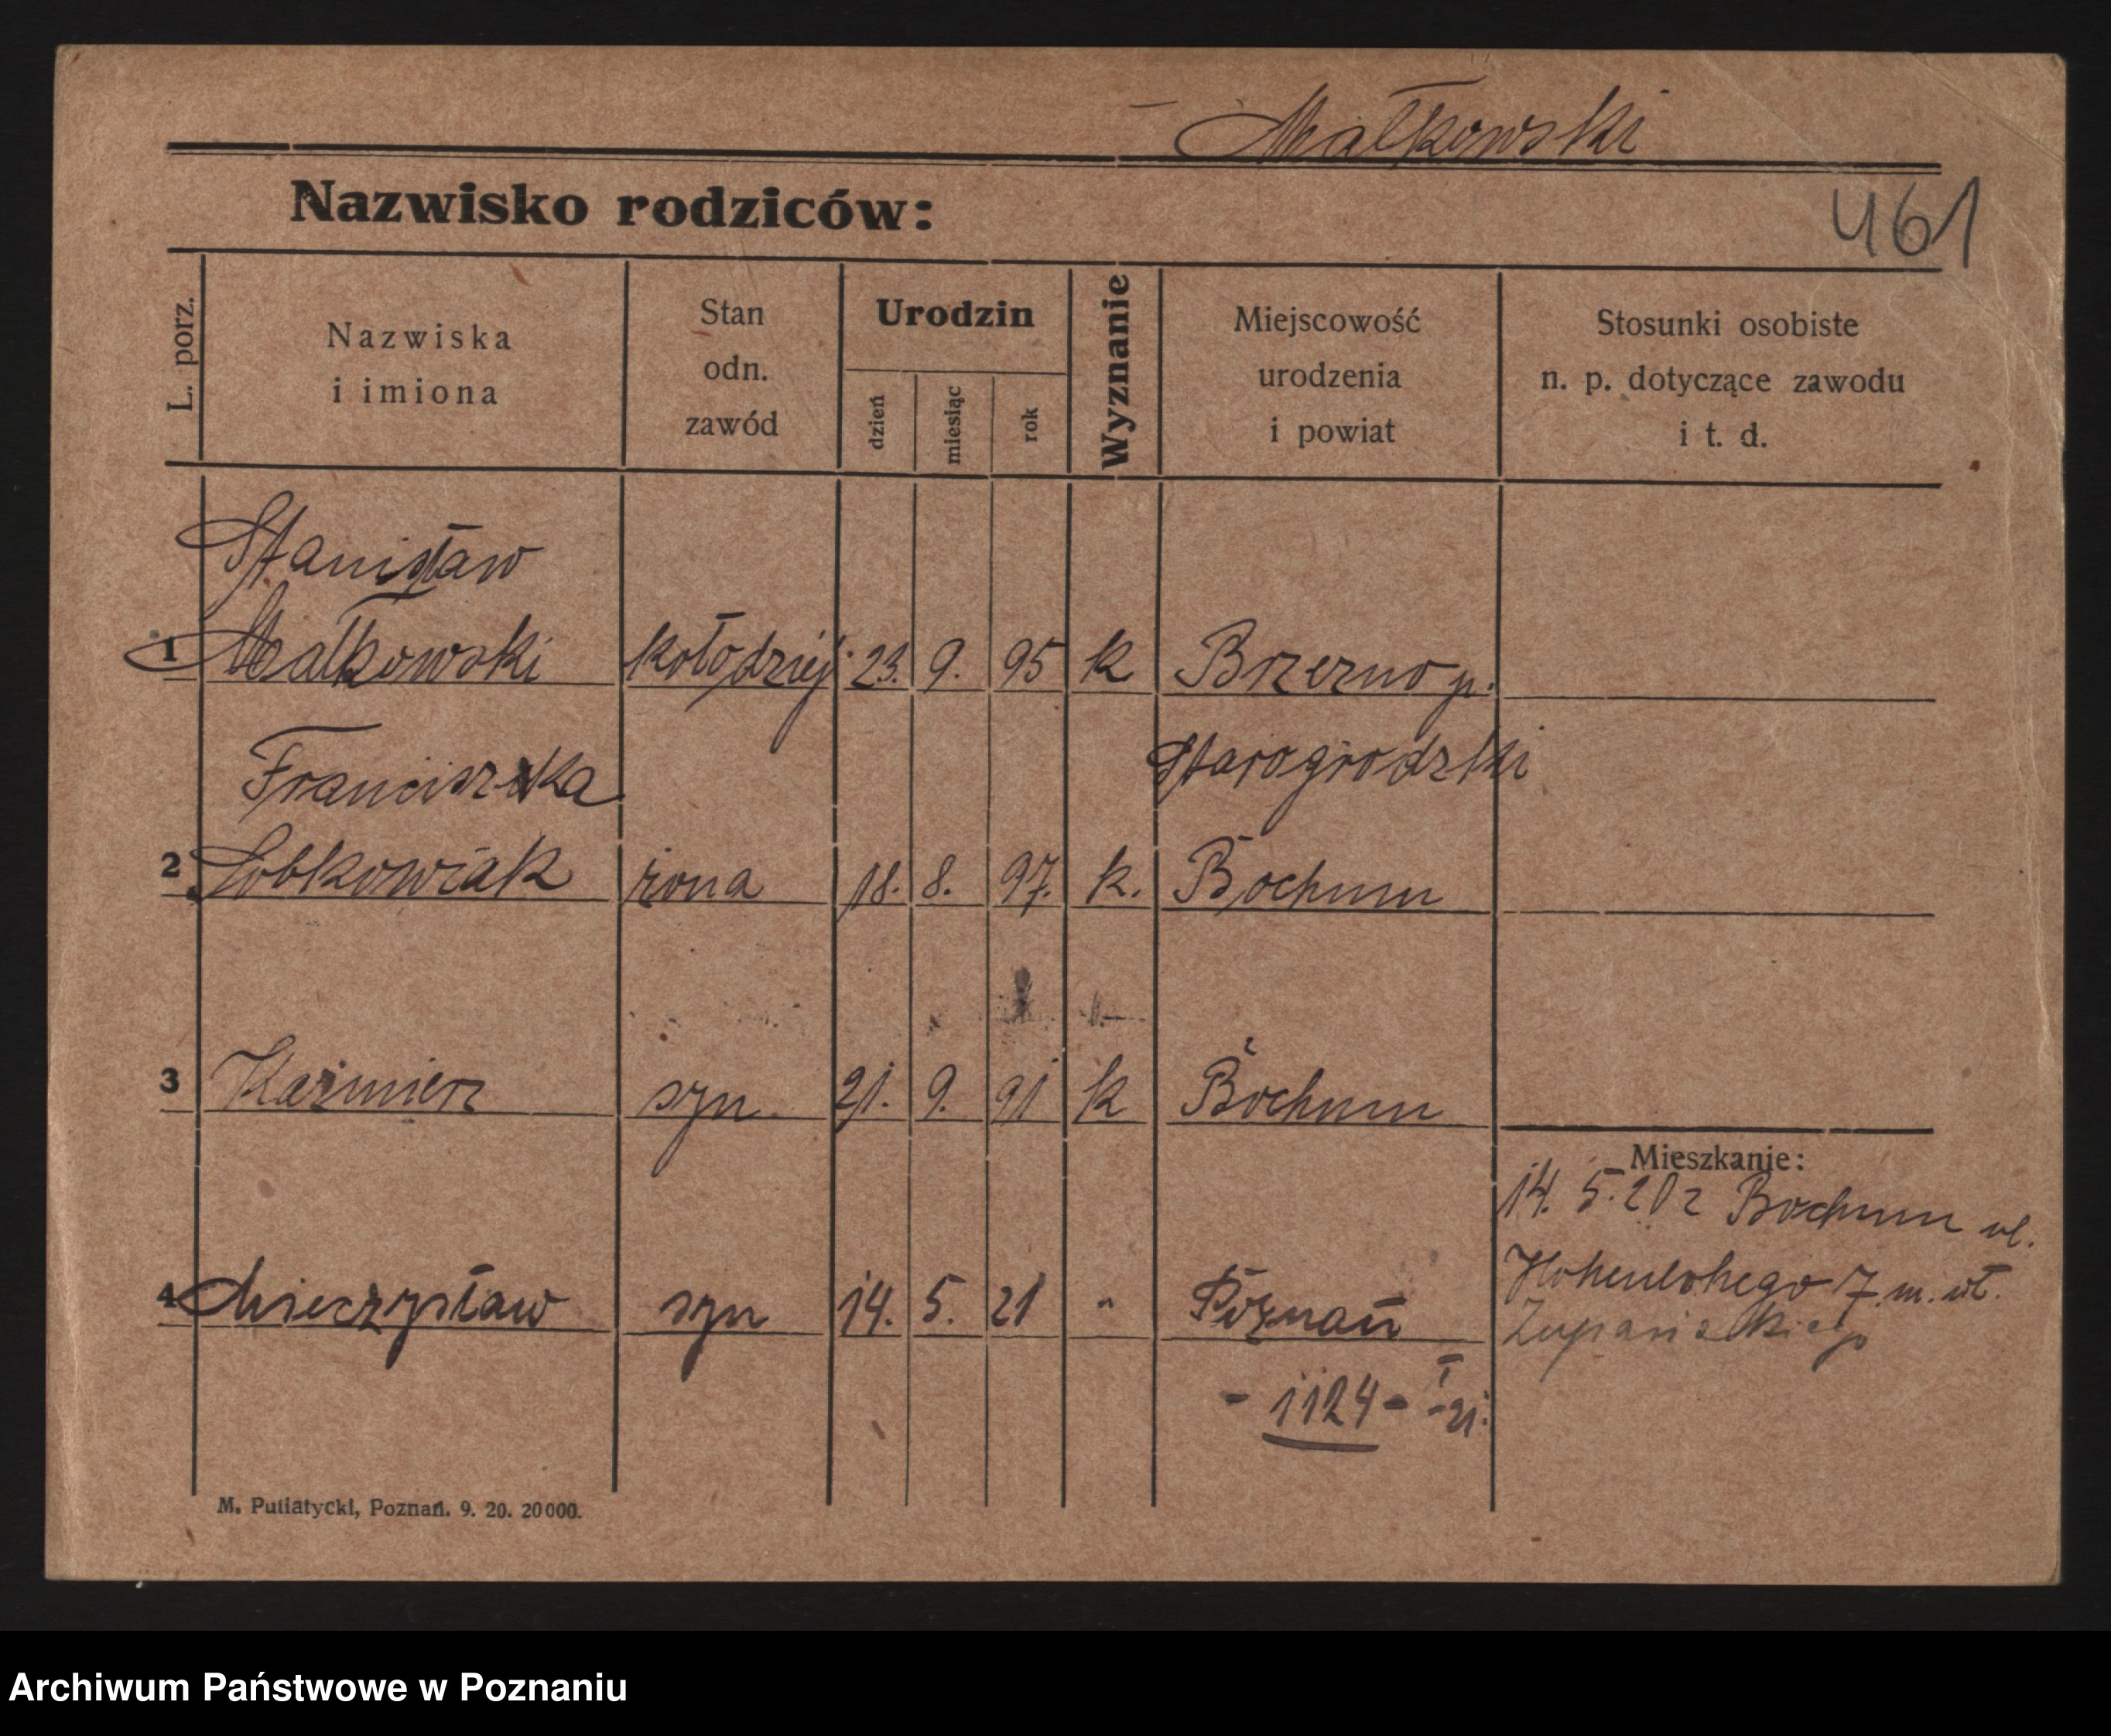 Małkowski
Nazwisko rodziców:
461
L. porz.
Nazwiska
i imiona
Stan
odn.
zawód
Urodzin
dzień
miesiąc
rok
Wyznanie
Miejscowość
urodzenia
i powiat
Stosunki osobiste
n. p. dotyczące zawodu
i t. d.
Stanisław
1 Małkowski kołodziej 23. 9. 95 k Brzezno p.
Franciszka Starogrodzki
2 Sobkowiak żona 18. 8. 97. k. Bochum
3 Kazimierz syn 21. 9. 91 k Bochum
Mieszkanie:
14. 5. 20 z Bochum ul.
Hohenlohego 7. m. wł.
4 Mieczysław syn 14. 5. 21 " Poznań
Żupańskiego
- 1124 - I - 21.
M. Putiatycki, Poznań. 9. 20. 20000.
Archiwum Państwowe w Poznaniu